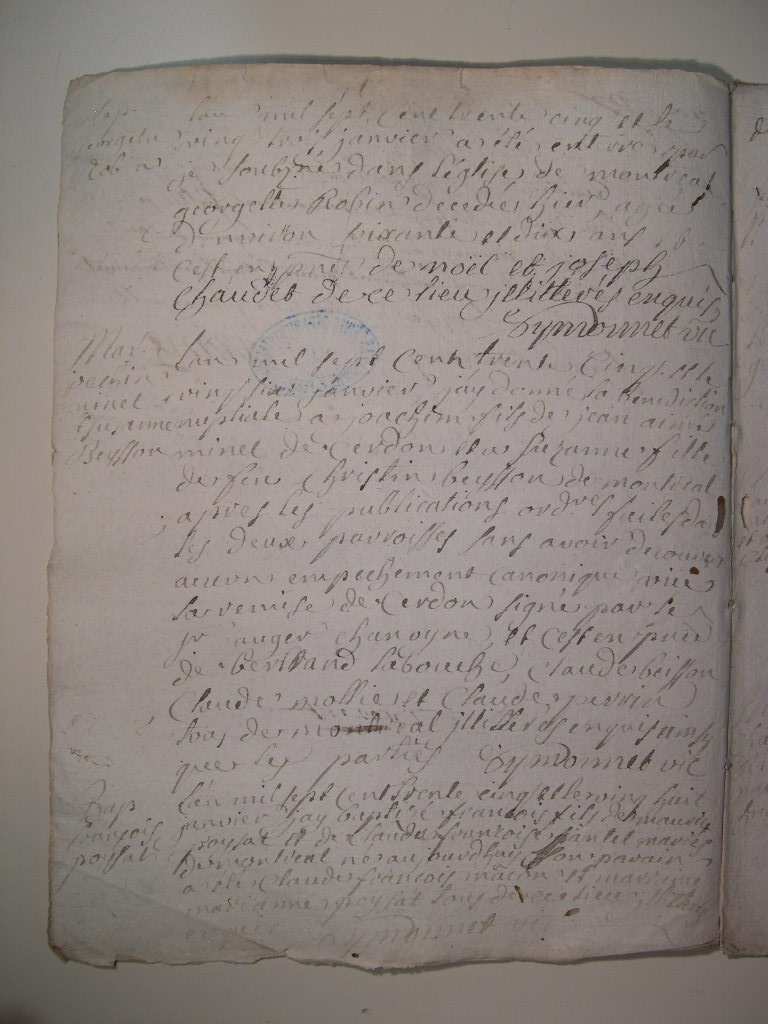 georgette
Robin
lan mil sept cent trente cinq et le
vingt trois janvier a été enterré par
je soubzné dans l'église de montreal
georgette Robin decedée hier agée
d'environ soixante et dix ans
c'est en pnce de noël et joseph
Chaudet de ce lieu illitteres enquis
Symonnet vic
Mar.
joachim
minel
Suzanne
Beysson
Lan mil sept cent trente cinq et le
vingt six janvier jay donné la benediction
nuptiale a joachim fils de jean
minel de Cerdon et a suzanne fille
de feu Christin beysson de montreal
apres les publications ordres faites da
les deux parroisses sans avoir decouvert
aucun empechement canonique veu
la remise de Cerdon signé par le
sr auger chanoyne et c'est en pnce
de bertrand labouche, Claude beisson
Claude mollie et Claude perrin
tous de montreal illitteres enquis ainsy
que les parties Symonnet vic
Bap
françois
poysat
Lan mil sept cent trente cinq et le vingt huit
janvier jay baptisé françois fils de maurice
poysat et de Claude françoise mariés
de montreal né aujourdhuy son parain
a eté Claude françois macon et maraine
marianne poysat tous de ce lieu
enquis Symonnet vic